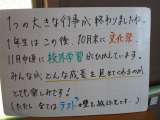 1つの大きな行事が終わりました。
1年生はこの後、10月末に文化祭、
11月中頃に校外学習がひかえています。
みんながどんな成長を見せてくれるのか、
とても楽しみです！
(ただし、なではテストの壁も